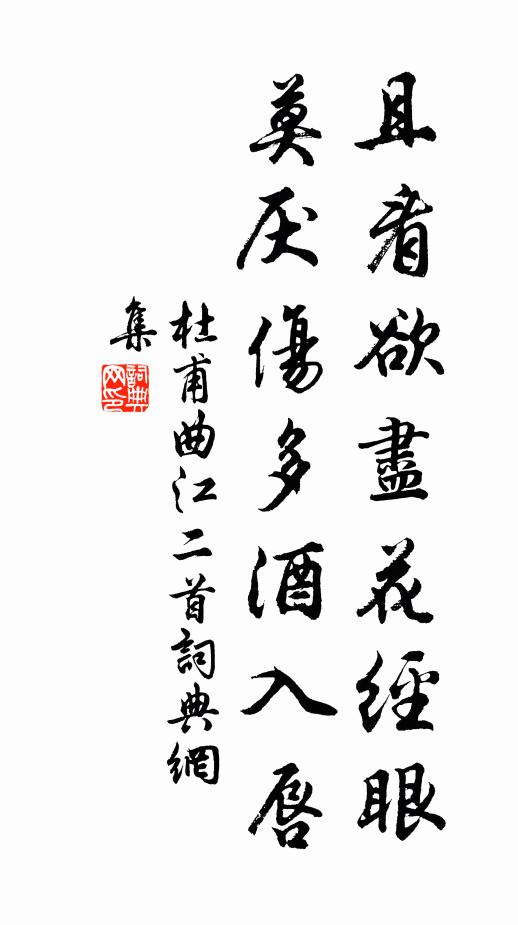 且看欲盡花經眼
莫厌傷多酒入唇
杜甫曲江二首詞典網
集
詞典网印